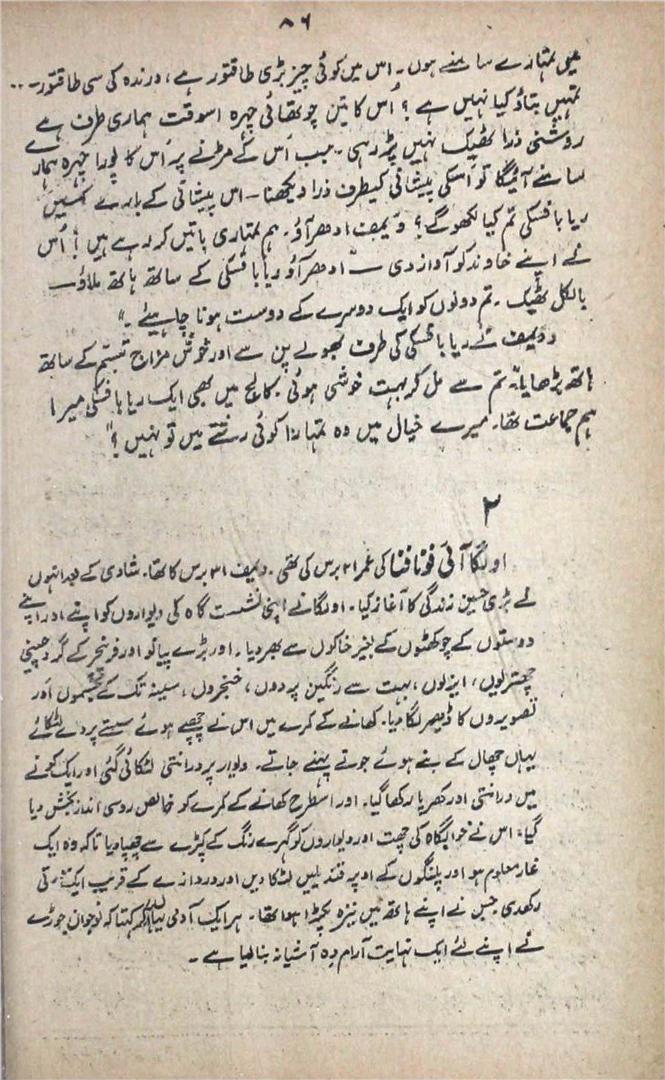 ۸۶
میں تمہارے سامنے ہوں۔ اس میں کوئی چیز بڑی طاقتور ہے، درندہ کی سی طاقتور۔۔۔
تمہیں بتاؤ کیا نہیں ہے؟ اُس کا تین چوتھائی چہرہ اسوقت ہماری طرف ہے
روشنی ذرا ٹھیک نہیں پڑ رہی۔ جب اُس کے مڑنے پر اُس کا پورا چہرہ ہمارے
سامنے آئیگا تو اُسکی پیشانی کیطرف ذرا دیکھنا۔ اس پیشانی کے بارے میں
ریابافسکی تم کیا کہو گے؟ ڈیمف ادھر آؤ۔ ہم تمہاری باتیں کر رہے ہیں! اُس
نے اپنے خاوند کو آواز دی ادھر آؤ ریابافسکی کے ساتھ ہاتھ ملاؤ
بالکل ٹھیک۔ تم دونوں کو ایک دوسرے کے دوست ہونا چاہیئے۔"
ڈیمف نے ریابافسکی کی طرف بھولے پن سے اور خوش مزاج تبسم کے ساتھ
ہاتھ بڑھایا۔ تم سے مل کر بہت خوشی ہوئی۔ کالج میں بھی ایک ریابافسکی میرا
ہم جماعت تھا۔ میرے خیال میں وہ تمہارا کوئی رشتے میں تو نہیں؟"
۲
اولگا آئی فونافنا کی عمر ۲۱ برس کی تھی۔ ڈیمف ۳۱ برس کا تھا۔ شادی کے بعد انہوں
نے بڑی حسین زندگی کا آغاز کیا۔ اولگا نے اپنی نشست گاہ کی دیواروں کو اپنے اور اپنے
دوستوں کے چوکھٹوں کے بغیر خاکوں سے بھر دیا۔ اور بڑے پیانو اور فرنیچر کے گرد چینی
چھتریوں، ایزلوں، بہت سے رنگین پردوں، خنجروں، سینہ تک کے مجسموں اور
تصویروں کا ڈھیر لگا دیا۔ کھانے کے کمرے میں اس نے چھپے ہوئے سستے پردے لٹکائے
یہاں چھال کے بنے ہوئے جوتے پہنے جاتے۔ دیوار پر درانتی لٹکائی گئی اور ایک کونے
میں درانتی اور کھرپا رکھا گیا۔ اور اسطرح کھانے کے کمرے کو خالص روسی انداز بخش دیا
گیا، اس نے خوابگاہ کی چھت اور دیواروں کو گہرے رنگ کے کپڑے سے چھپا دیا تاکہ وہ ایک
غار معلوم ہو اور پلنگوں کے اوپر قندیلیں لٹکا دیں اور دروازے کے قریب ایک مورتی
رکھدی جس نے اپنے ہاتھ میں نیزہ پکڑا ہوا تھا۔ ہر ایک آدمی یہاں آکر کہتا کہ نوجوان جوڑے
نے اپنے لئے ایک نہایت آرام دِہ آشیانہ بنا لیا ہے۔